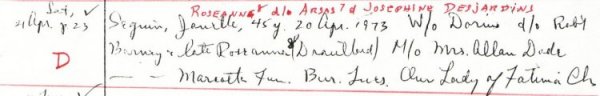 Roseanne d/o Arsas? d Josephine Desjardins
Sat, ✓ Seguin, Janette, 45 y. 20 Apr. 1973 W/o Dorius d/o Rob't
21 Apr. p 23
D Burney & late Roseanne (Drouillard) M/o Mrs. Allan Dade
— — Marcotte Fun. Bur. Tues. Our Lady of Fatima Ch